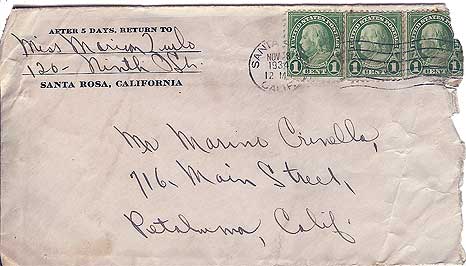 AFTER 5 DAYS, RETURN TO
Miss Marion
120- Ninth St.
SANTA ROSA, CALIFORNIA
SANTA
NOV
193
12 M
CALIF
UNITED STATES POSTAGE
1 CENT 1
UNITED STATES POSTAGE
1 CENT 1
1 CENT 1
Mr Marino Crinella,
716. Main Street,
Petaluma, Calif.